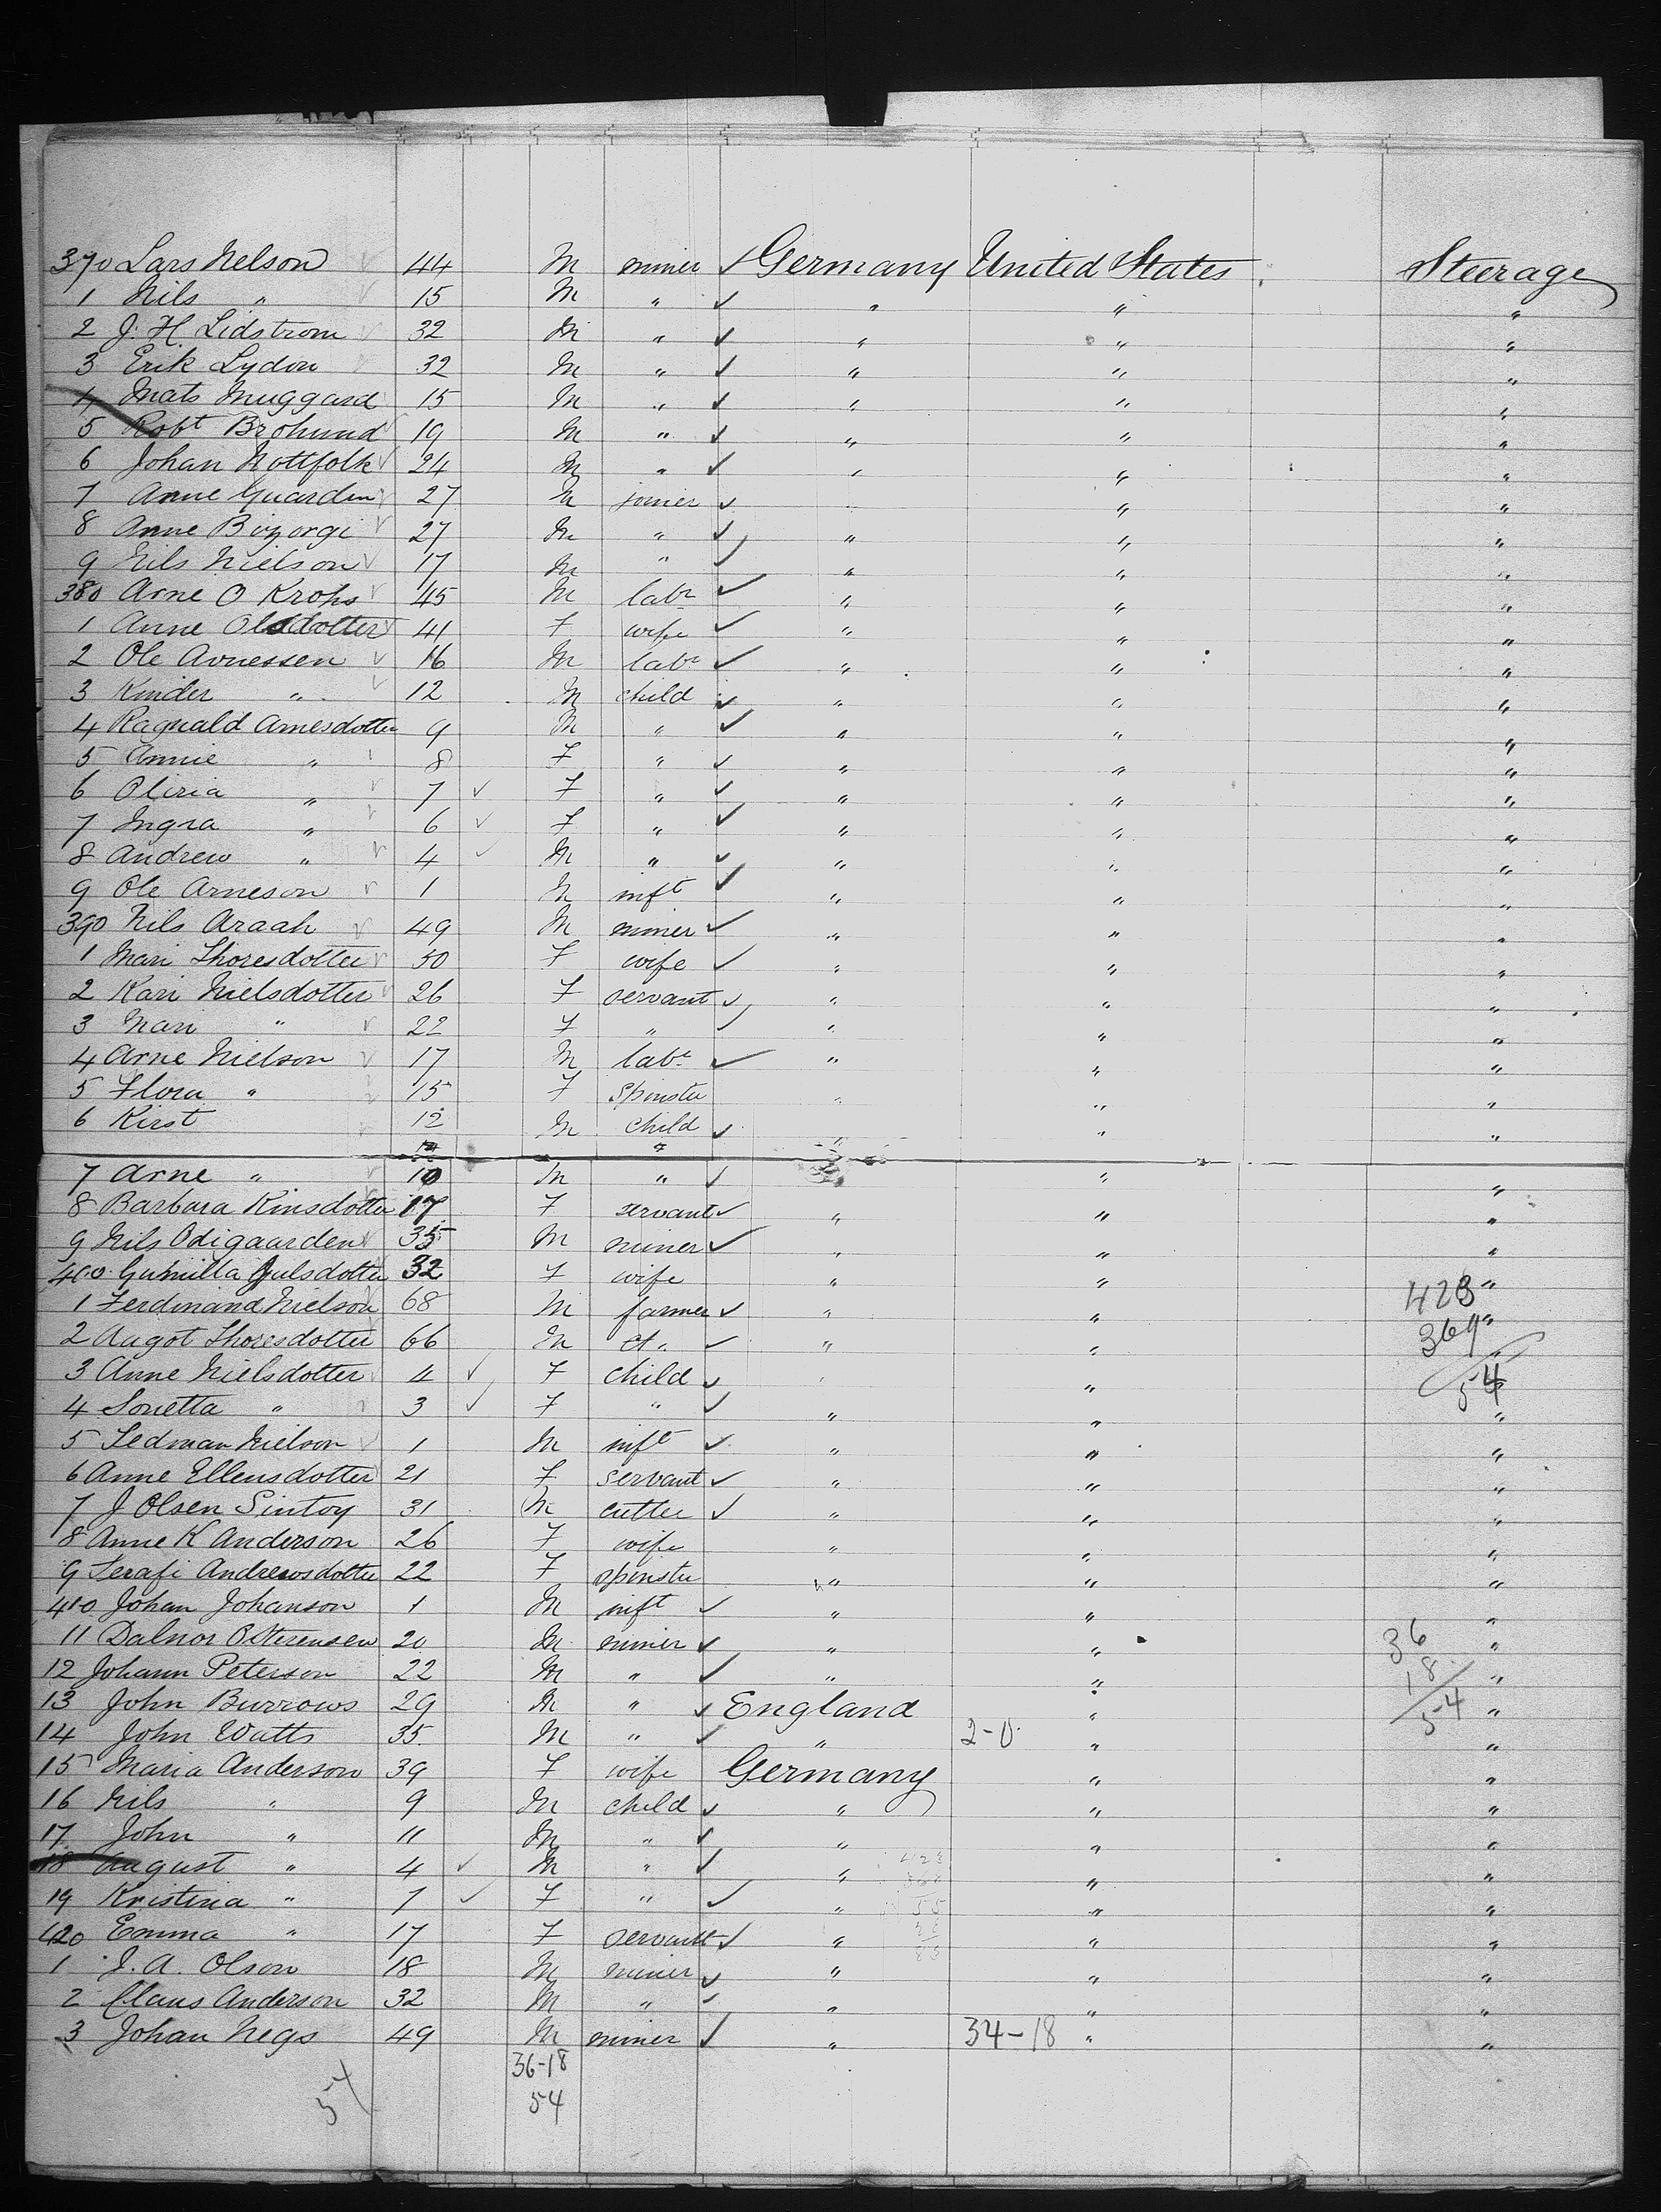 370 Lars Nelson 44 M miner ✓ Germany United States Steerage
1 Nils " 15 M " ✓ " " "
2 J. H. Lidstrom 32 M " ✓ " " "
3 Erik Lydon 32 M " ✓ " " "
4 Mats Muggard 15 M " ✓ " " "
5 Robt Brohund 19 M " ✓ " " "
6 Johan Nottfolk 24 M " ✓ " " "
7 Anne Guarden 27 M joiner ✓ " " "
8 Anne Bizorgi 27 M " ✓ " " "
9 Nils Nielson 17 M " ✓ " " "
380 Arne O Krohs 45 M labr ✓ " " "
1 Anne Olsdotter 41 F wife ✓ " " "
2 Ole Arnessen 16 M labr ✓ " " "
3 Kinder " 12 M child ✓ " " "
4 Ragnald Arnesdotter 9 M " ✓ " " "
5 Annie " 8 F " ✓ " " "
6 Oliria " 7 ✓ F " ✓ " " "
7 Ingra " 6 ✓ F " ✓ " " "
8 Andrew " 4 ✓ M " ✓ " " "
9 Ole Arneson 1 M inft ✓ " " "
390 Nils Araah 49 M miner ✓ " " "
1 Mari Thoresdotter 50 F wife ✓ " " "
2 Kari Nielsdotter 26 F servant ✓ " " "
3 Mari " 22 F " ✓ " " "
4 Arne Nielson 17 M labr ✓ " " "
5 Flora " 15 F Spinster " " "
6 Kirst 12 M child ✓ " " "
7 Arne " 10 M " ✓ " "
8 Barbara Kinsdotter 17 F servant ✓ " " "
9 Nils Odigaarden 35 M miner ✓ " " "
400 Gunilla Julsdotter 32 F wife " " "
1 Ferdinand Nielson 68 M farmer ✓ " " 423 "
2 Augot Thoresdotter 66 M " ✓ " " 369 "
3 Anne Nielsdotter 4 ✓ F child ✓ " " 54
4 Sonetta " 3 ✓ F " ✓ " " "
5 Tedman Nielson 1 M inft ✓ " " "
6 Anne Ellensdotter 21 F servant ✓ " " "
7 J Olsen Sintoy 31 M cutter ✓ " " "
8 Anne K Anderson 26 F wife " " "
9 Serafi Andrewsdotter 22 F spinster ✓ " " "
410 Johan Johanson 1 M inft ✓ " " "
11 Dalnor Osterensen 20 M miner ✓ " " 36 "
12 Johann Peterson 22 M " ✓ " " 18 "
13 John Burrows 29 M " ✓ England " 54 "
14 John Watts 35 M " ✓ " 2-0 " "
15 Maria Anderson 39 F wife Germany " "
16 Nils " 9 M child ✓ " " "
17 John " 11 M " ✓ " " "
18 August " 4 ✓ M " ✓ " " "
19 Kristina " 7 ✓ F " ✓ " " "
420 Emma " 17 F servant ✓ " " "
1 J. A. Olson 18 M miner ✓ " " "
2 Claus Anderson 32 M " ✓ " " "
3 Johan Negs 49 M miner ✓ " 34-18 " "
36-18
54 54